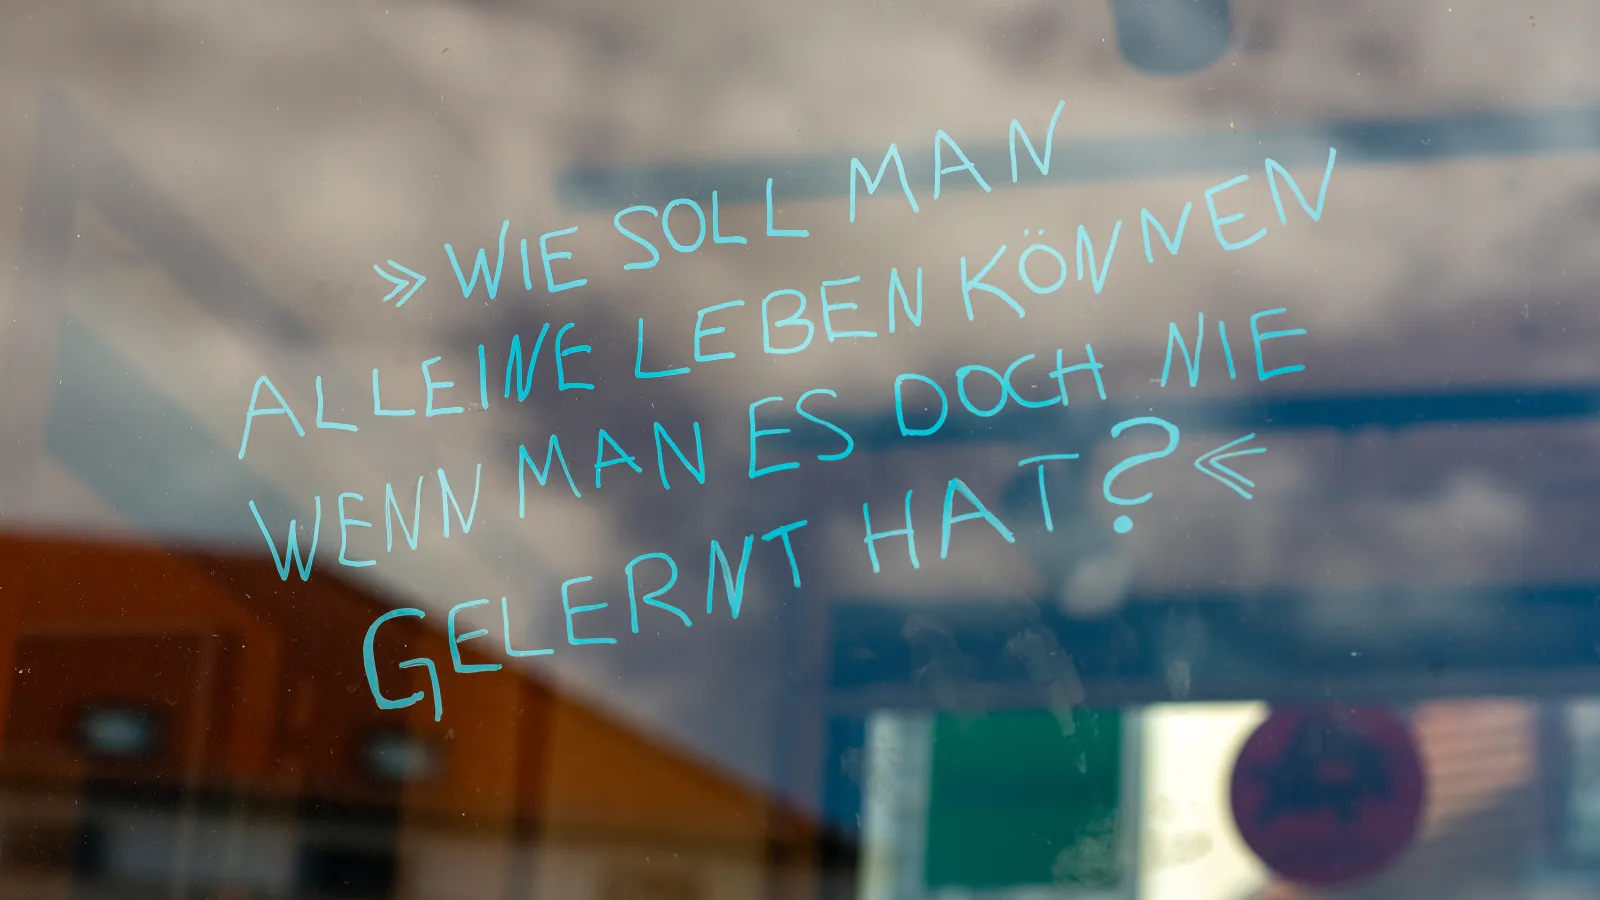 »WIE SOLL MAN
ALLEINE LEBEN KÖNNEN
WENN MAN ES DOCH NIE
GELERNT HAT?«